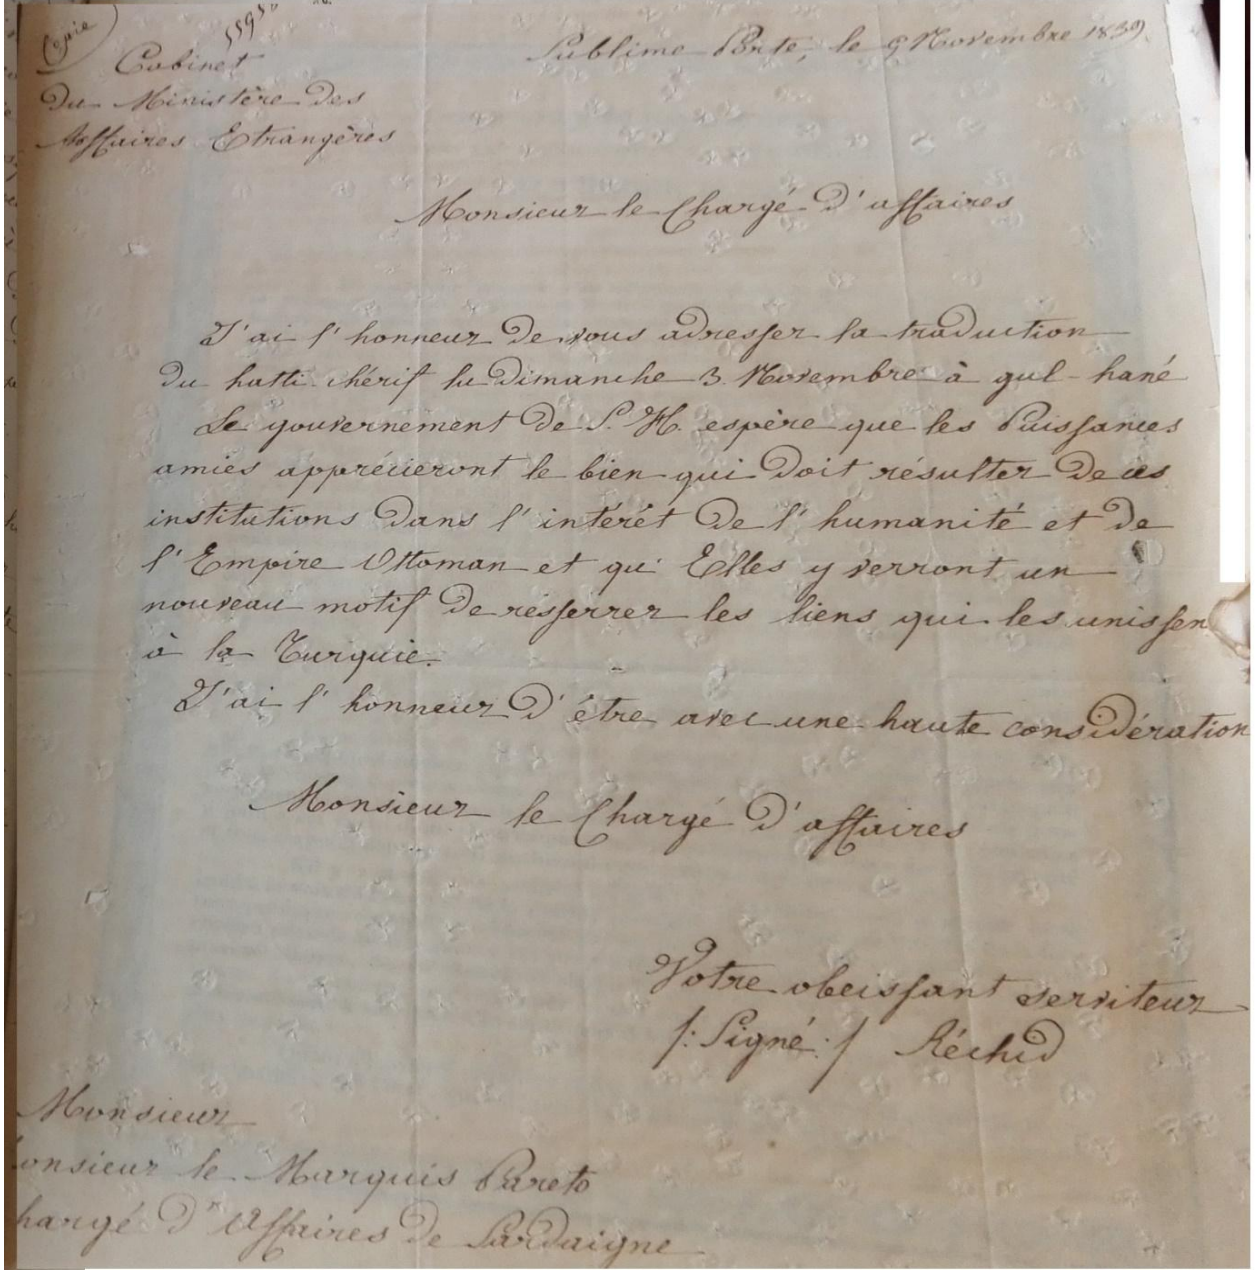 Copie
Cabinet
du Ministère des
Affaires Etrangères
Sublime Porte, le 9 Novembre 1839
Monsieur le Chargé d'affaires
J'ai l'honneur de vous adresser la traduction
du hatti-chérif lu dimanche 3 Novembre à gul-hané
Le gouvernement de S. H. espère que les Puissances
amies apprécieront le bien qui doit résulter de ces
institutions dans l'intérêt de l'humanité et de
l'Empire Ottoman et qu'Elles y verront un
nouveau motif de resserrer les liens qui les unissen
à la Turquie.
J'ai l'honneur d'être avec une haute considération
Monsieur le Chargé d'affaires
Votre obeissant serviteur
/: Signé :/ Réchid
Monsieur
onsieur le Marquis Pareto
hargé d'Affaires de Sardaigne